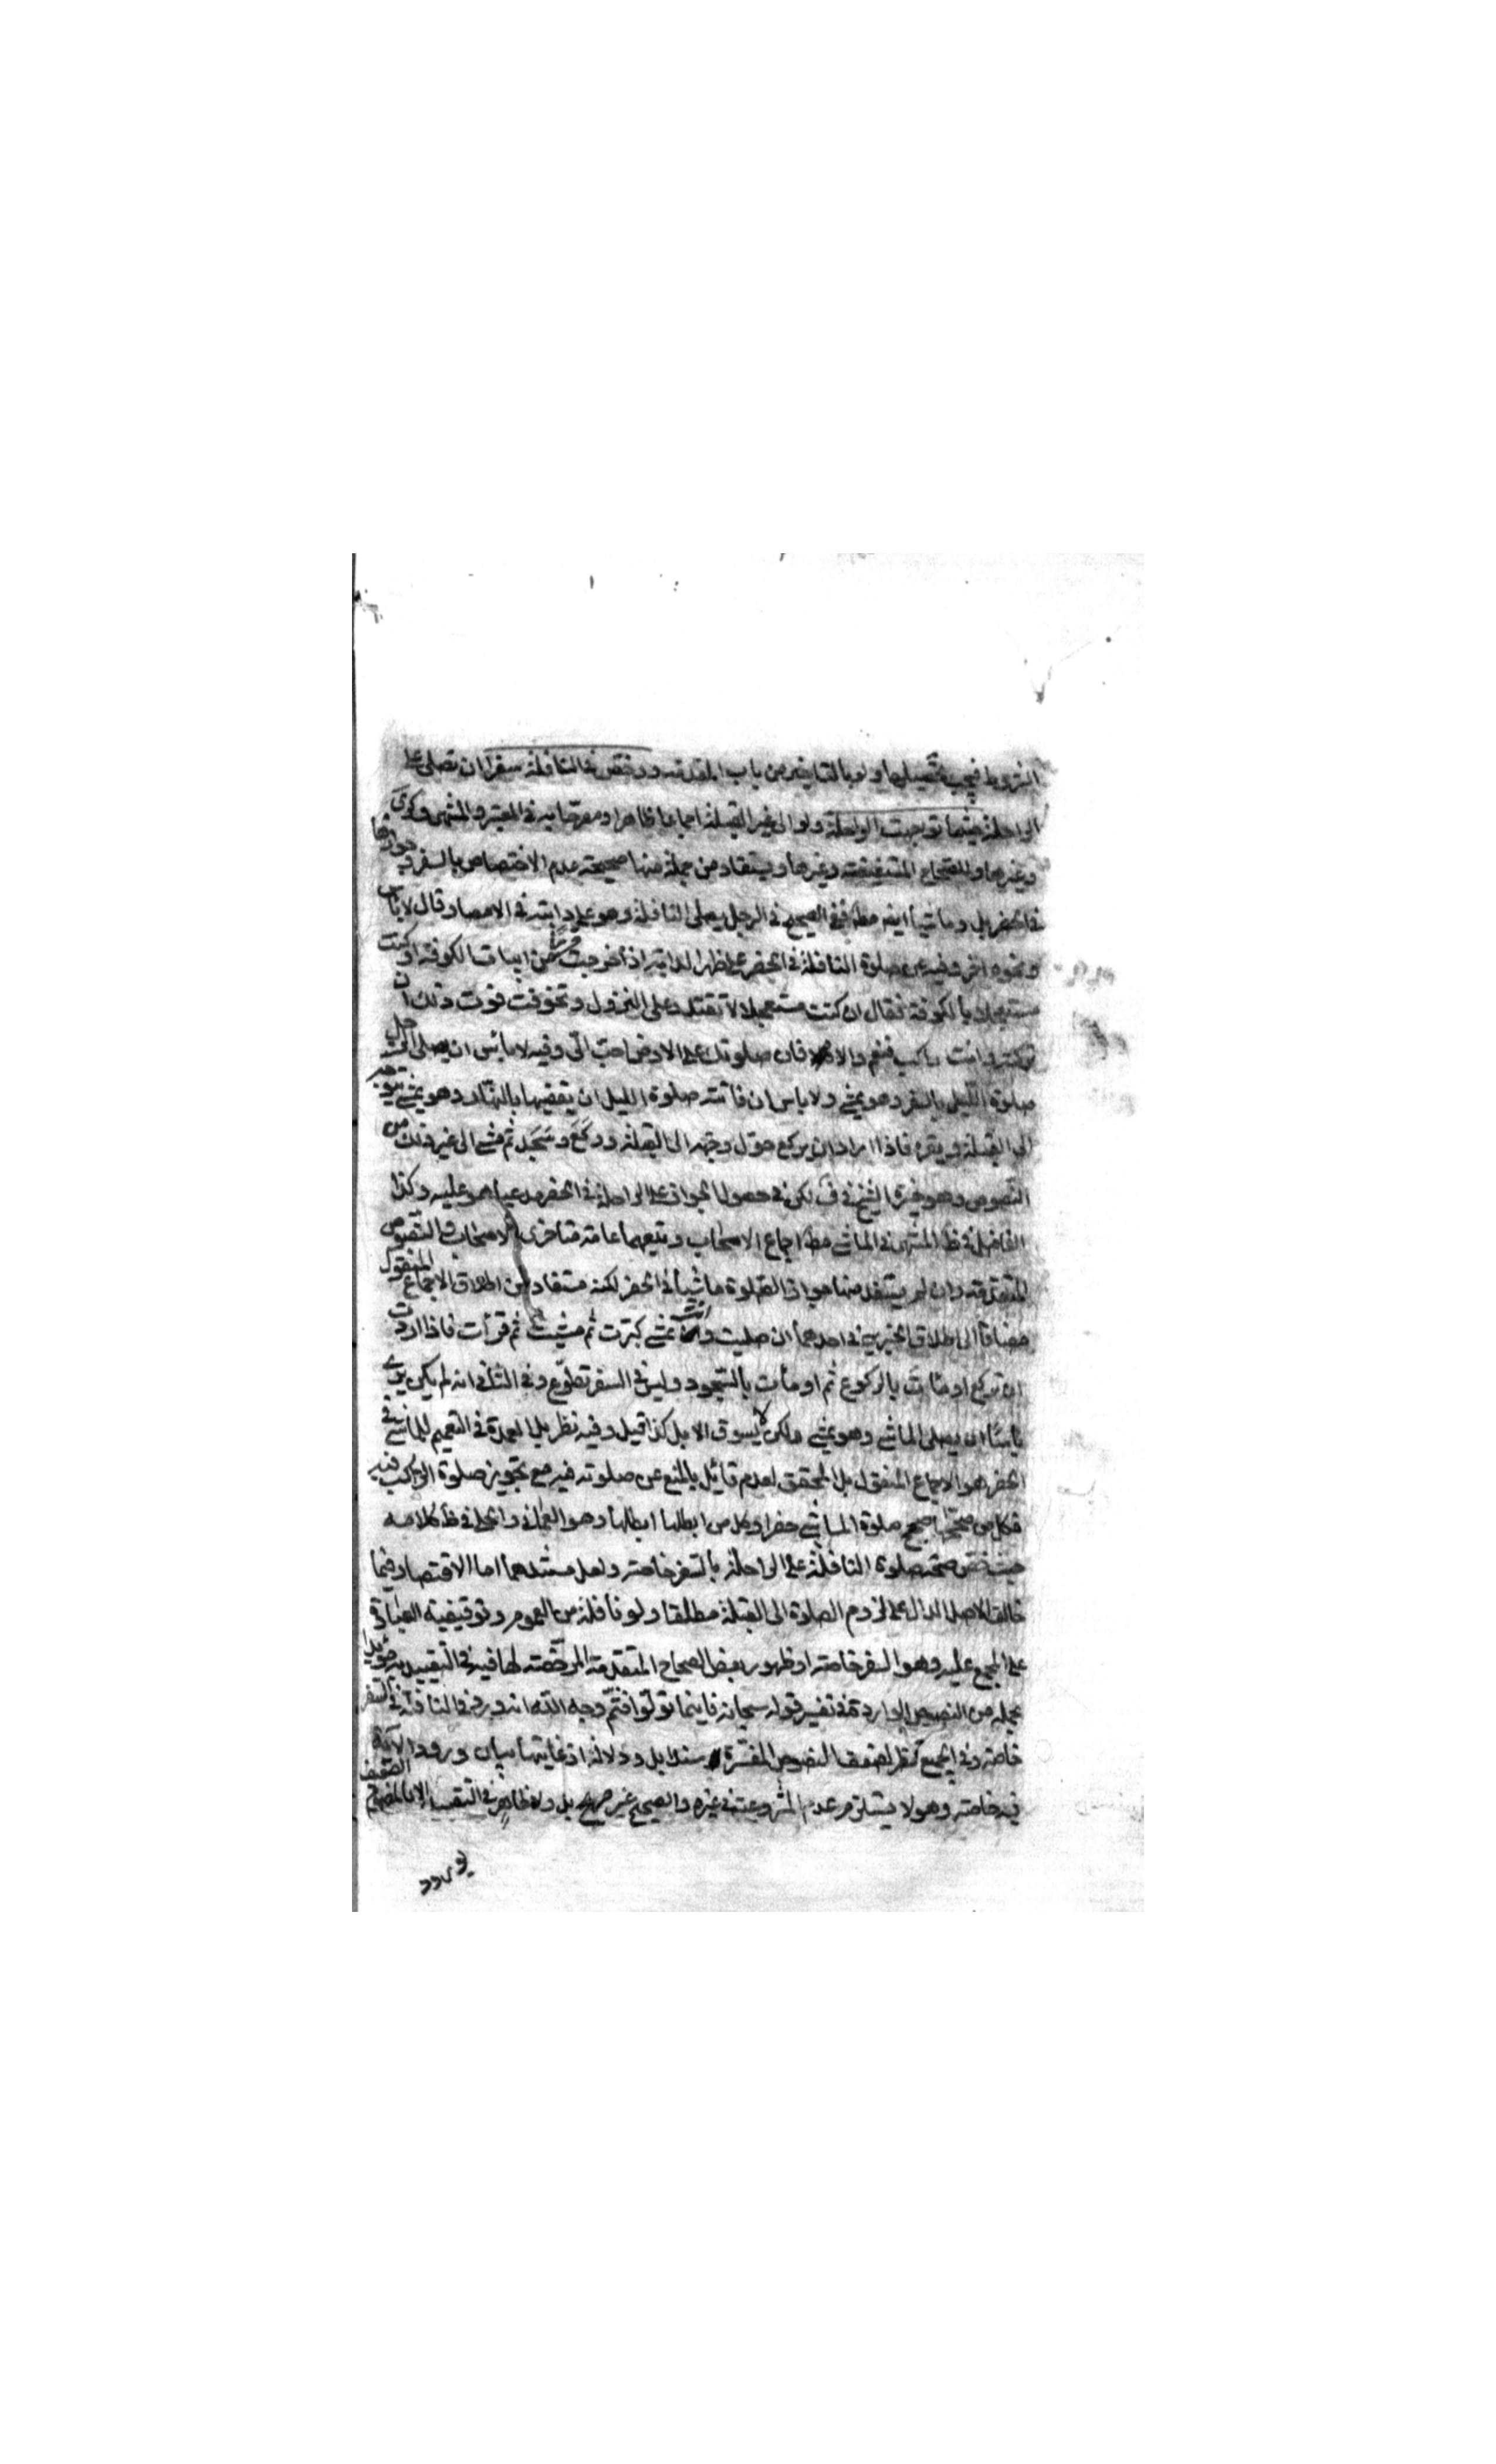 الشروط فيجب تحصيلها ولو بالتاخير من باب المقدمة ورخص في النافلة سفرا ان تصلي على
الراحلة حيثما توجهت الراحلة ولو الى غير القبلة اجماعا ظاهرا ومصرحا به في المعتبر والمنتهى وكرى
وغيرها وللصحاح المستفيضة وغيرها ويستفاد من جملة منها صحيحة عدم الاختصاص بالسفر وجوازها
في الحضر بل وماشيا ايضا مط ففي الصحيح في الرجل يصلي النافلة وهو على دابته في الامصار قال لا باس
ونحوه اخر وفيه عن صلوة النافلة في الحضر على ظهر الدابة اذا خرجت قريبا من ابيات الكوفة او كنت
مستعجلا بالكوفة فقال ان كنت مستعجلا لا تقدر على النزول وتخوفت فوت ذلك ان
تركته وانت راكب فنعم والا فان صلوتك على الارض احب الي وفيه لا باس ان يصلي الرجل
صلوة الليل بالسفر وهو يمشي ولا باس ان فاتته صلوة الليل ان يقضيها بالنهار وهو يمشي يتوجه
الى القبلة ويقرء فاذا اراد ان يركع حول وجهه الى القبلة وركع وسجد ثم مشى الى غير ذلك من
النصوص وهو خيرة الشيخ في ف لكن في حصول الجواز على الراحلة في الحضر مدعيا عليه وكذا
الفاضل في ظ المنتهى في الماشي مط اجماع الاصحاب وتبعهما عامة متاخري الاصحاب والنصوص
المتقدمة وان لم يستفد منها جواز الصلوة ماشيا في الحضر لكنه مستفاد من اطلاق الاجماع المنقول
مضافا الى اطلاق الخبرين في احدهما ان صليت وانت تمشي كبرت ثم مشيت ثم قرأت فاذا اردت
ان تركع اومأت بالركوع ثم اومأت بالسجود وليس في السفر تطوع وفي الثاني انه لم يكن يرى
بأسا ان يصلي الماشي وهو يمشي ولكن لا يسوق الابل كذا قيل وفيه نظر بل العمدة في التعميم للماشي في
الحضر هو الاجماع المنقول بل المحقق لعدم قائل بالمنع عن صلوته فيه مع تجويز صلوة الراكب فيه
فكل من صححها صحح صلوة الماشي حضرا وكل من ابطلها ابطلها وهو العماني والحلي في ظ كلامه
حيث خص صحة صلوة النافلة على الراحلة بالسفر خاصة ولعل مستندهما اما الاقتصار فيما
خالف الاصل الدال على لزوم الصلوة الى القبلة مطلقا ولو نافلة من العموم وتوقيفية العبادة
على المجمع عليه وهو السفر خاصة او ظهور بعض الصحاح المتقدمة المرخصة لها فيه في التقييد به
بجملة من النصوص الواردة في تفسير قوله سبحانه فاينما تولوا فثم وجه الله انه ورد في النافلة في السفر
خاصة وفي الجميع نظر لضعف النصوص المفسرة سندا بل ودلالة اذ غايتها بيان ورود الآية
فيه خاصة وهو لا يستلزم عدم المشروعية في غيره والصحيح غير صريح بل ولا ظاهر في التقييد الا بالمفهوم الضعيف